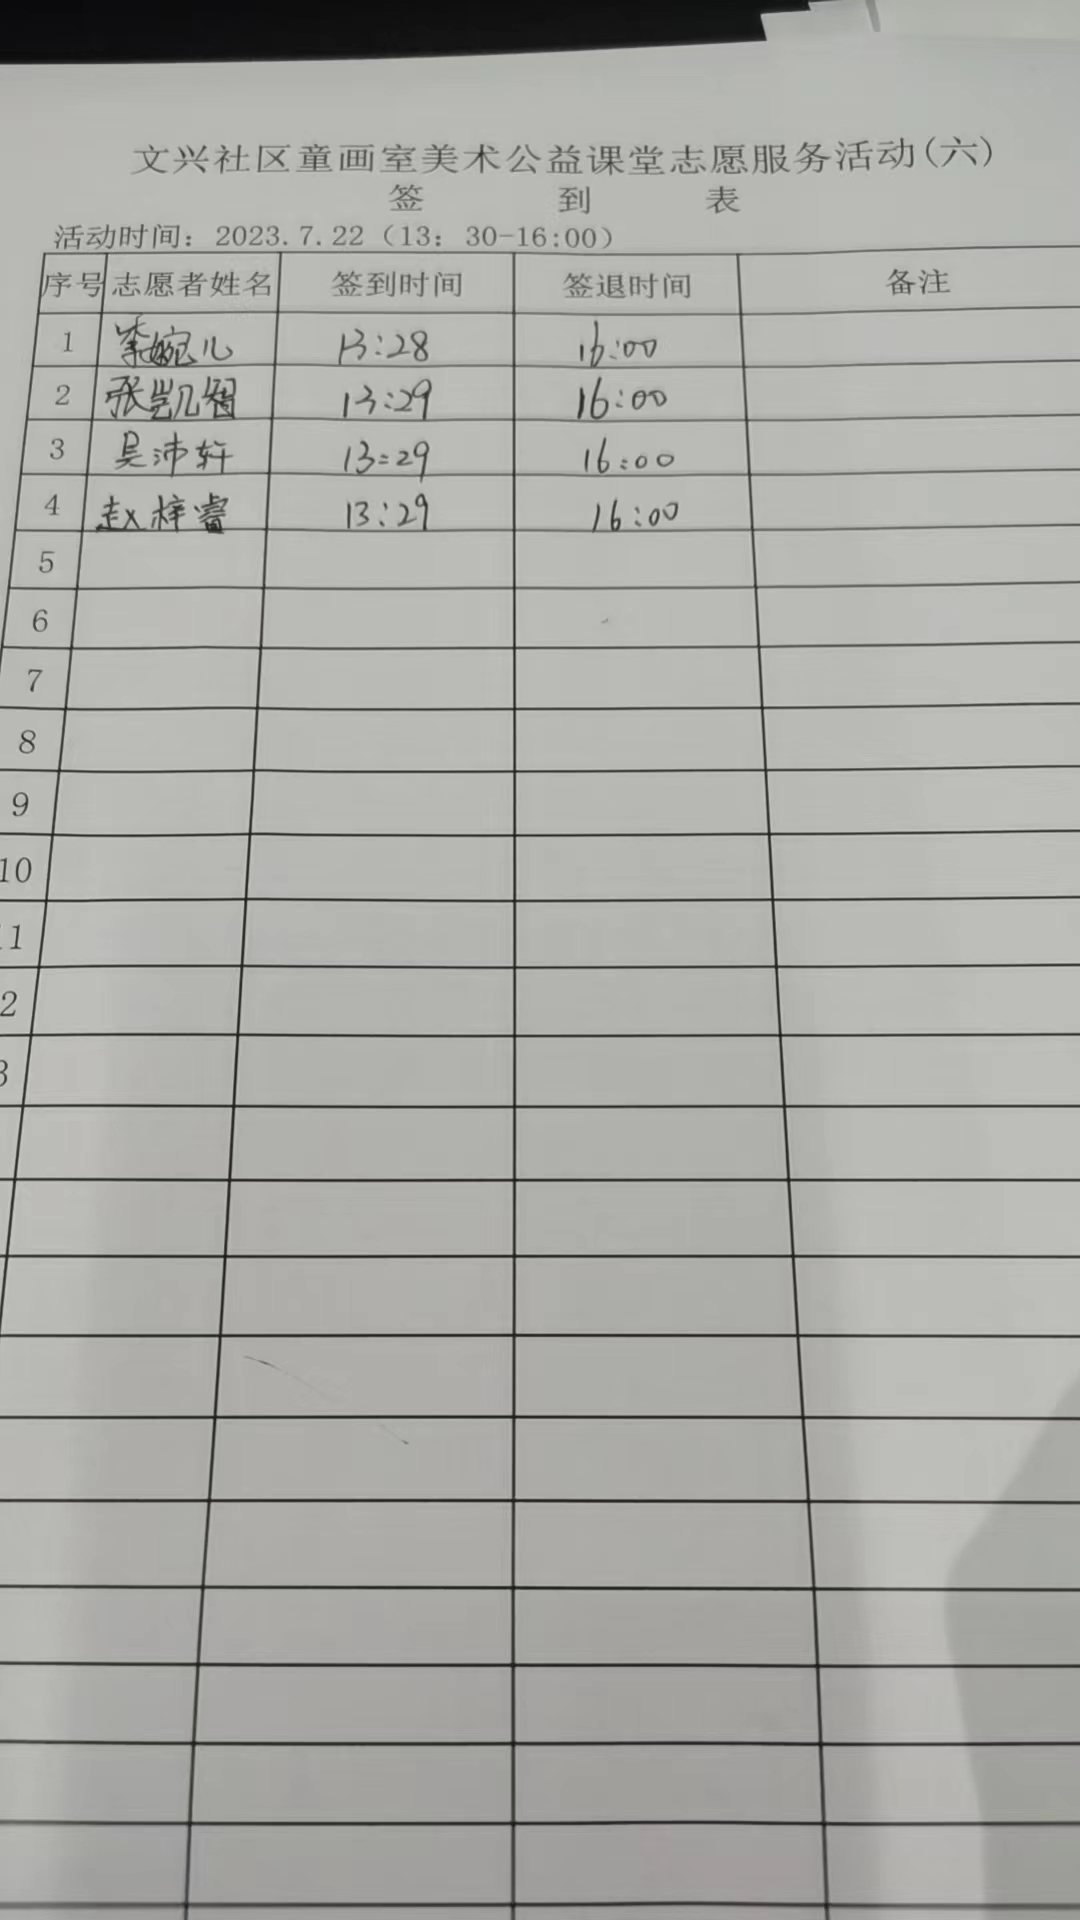 文兴社区童画室美术公益课堂志愿服务活动(六)
签 到 表
活动时间：2023.7.22（13：30-16:00）
序号 志愿者姓名 签到时间 签退时间 备注
1 婉儿 13:28 16:00
2 张凯智 13:29 16:00
3 吴沛轩 13:29 16:00
4 赵梓睿 13:29 16:00
5
6
7
8
9
10
11
2
3